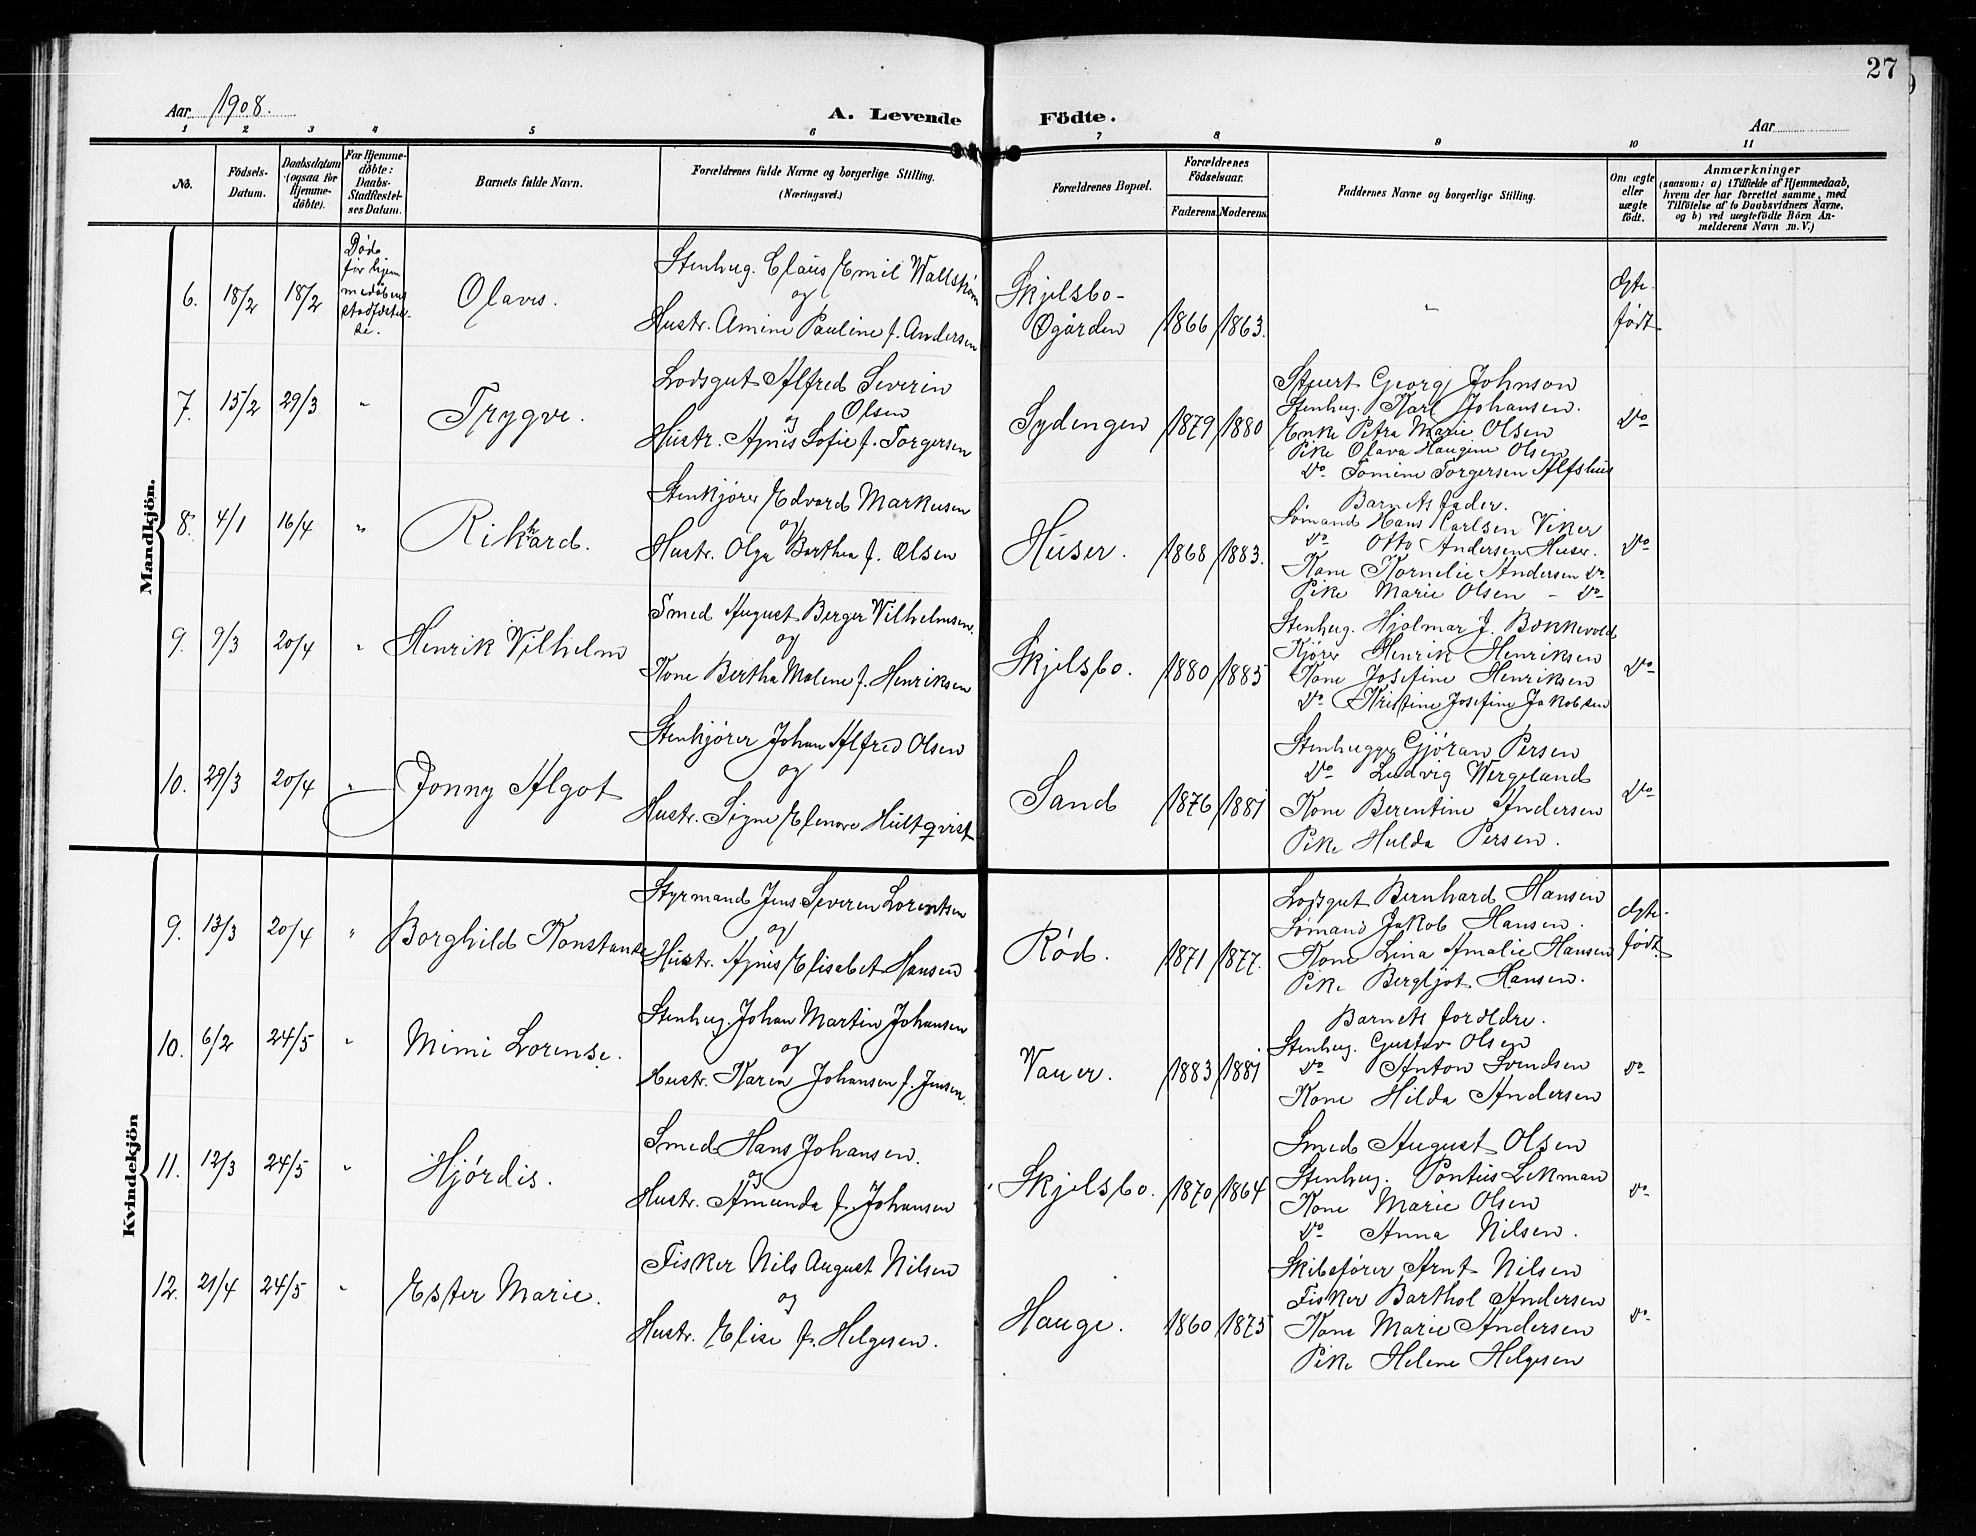 27
Aar 1908.
A. Levende Födte.
Aar
1 2 3 4 5 6 7 8 9 10 11
No.
Fødsels-
Datum.
Daabsdatum
(ogsaa for
Hjemme-
døbte).
For Hjemme-
døbte:
Daabs-
Stadfæstel-
ses Datum.
Barnets fulde Navn.
Forældrenes fulde Navne og borgerlige Stilling.
(Næringsvei.)
Forældrenes Bopæl.
Forældrenes
Fødselsaar.
Faderens. Moderens.
Faddernes Navne og borgerlige Stilling.
Om ægte
eller
uægte
født.
Anmærkninger
(saasom: a) i Tilfælde af Hjemmedaab,
hvem der har forrettet samme, med
Tilføielse af to Daabsvidners Navne,
og b) ved uægtefødte Børn An-
melderens Navn m. V.)
Mandkjön.
6. 18/2 18/2
Døde
før hjem
medåbens
stadfæstel-
se.
Olaves.
Stenhug. Claus Emil Wallstrøm
og
Hustr. Amine Pauline f. Andersen
Skjelsbo-
Øgården
1866 1863.
"
Egte-
født
7. 15/2 29/3 "
Trygve.
Lodsgut Alfred Severin
Olsen
og
Hustr. Agnes Sofie f. Torgersen
Sydengen
1879 1880
Stuert Georg Johnson
Stenhug. Karl Johansen.
Enke Petra Marie Olsen
Pike Olava Haugine Olsen
Do Tomine Torgersen Alfshus
Do
8. 4/1 16/4 "
Rikhard.
Stenkjører Edvard Markusen
og
Hustr. Olga Barthea f. Olsen
Huser.
1868 1883.
Barnets fader.
Sømand Hans Carlsen Viker
Do Otto Andersen Huser.
Kone Kornelie Andersen Do.
Pike Marie Olsen - Do
Do
9. 9/3 20/4 "
Henrik Vilhelm
Smed August Berger Vilhelmsen.
og
Kone Bertha Malene f. Henriksen
Skjelsbo.
1880 1885
Stenhug. Hjalmar J. Bokkevold
Kjører Henrik Henriksen
Kone Josefine Henriksen
Do Kristine Josefine Jakobsen
Do
10. 29/3 20/4 "
Jonny Algot
Stenkjører Johan Alfred Olsen
og
Hustr. Signe Elenore Hultqvist
Sand
1876 1881
Stenhugger Gjöran Persen
Do Ludvig Wergeland
Kone Berentine Andersen
Pike Hulda Persen.
Do
Kvindekjön
9. 13/3 20/4 "
Borghild Konstanse
Styrmand Jens Severen Lorentsen
og
Hustr. Agnes Elisabet Hansen
Rød.
1871 1877.
Lodsgut Bernhard Hansen
Sømand Jakob Hansen.
Kone Lina Amalie Hansen
Pike Bergljot Hansen.
Egte-
født
10. 6/2 24/5 "
Mimi Lorense.
Stenhug. Johan Martin Johansen
og
Hustr. Karen Johansen f. Jensen.
Vauer.
1883 1881
Barnets foreldre.
Stenhug. Gustav Olsen
Do Anton Svendsen
Kone Hilda Andersen
Do
11. 12/3 24/5 "
Hjørdis.
Smed Hans Johansen.
og
Hustr. Amunda f. Johansen
Skjelsbo.
1870 1864
Smed August Olsen
Stenhug. Pontus Lekman
Kone Marie Olsen
Do Anna Nilsen.
Do
12. 21/4 24/5 "
Ester Marie.
Fisker Nils August Nilsen
og
Hustr. Elise f. Helgesen.
Hauge.
1860 1875
Skibsfører Arnt Nilsen
Fisker Barthol Andersen
Kone Marie Andersen
Pike Helene Helgesen
Do